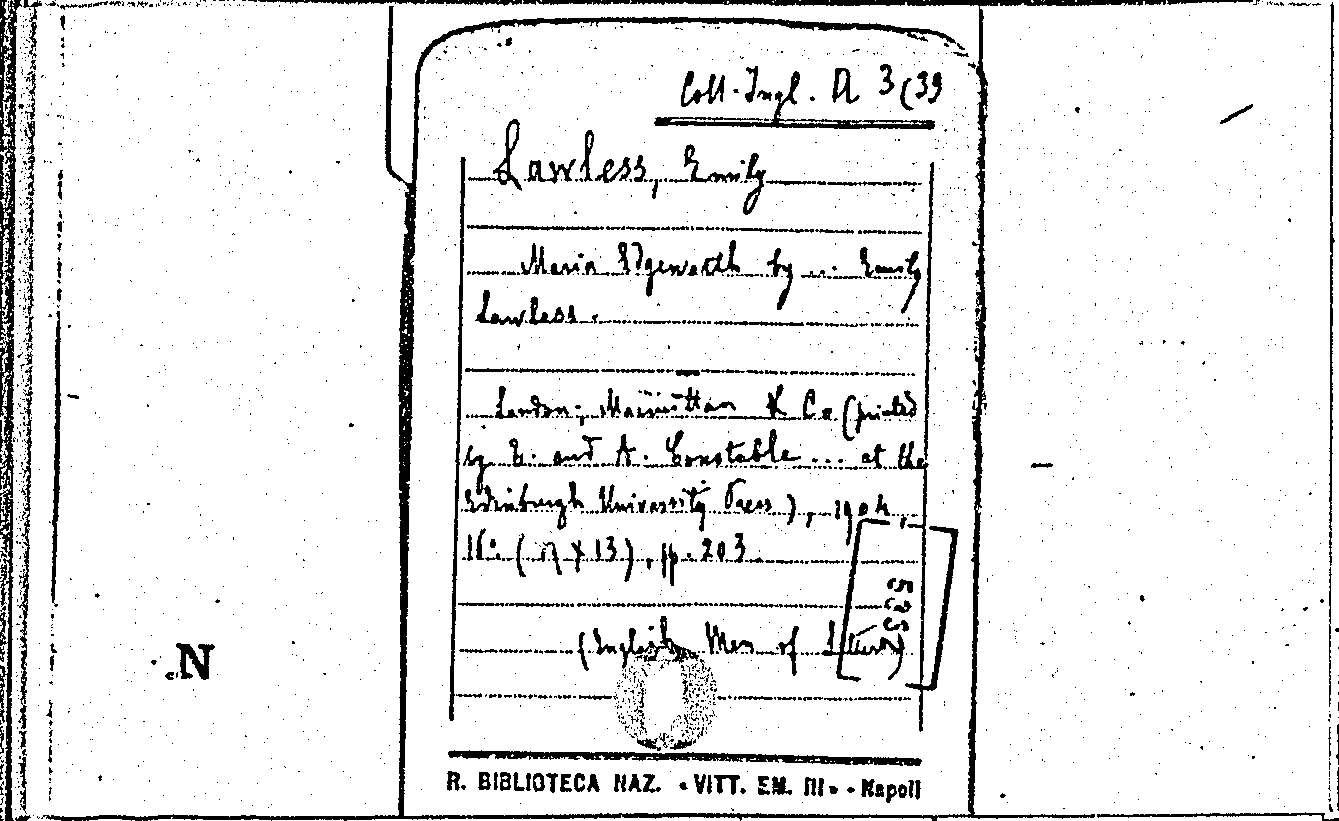 Coll. Ingl. A 3(39
Lawless, Emily
Maria Edgeworth by ... Emily
Lawless.
London, Macmillan & Co (printed
by T. and A. Constable ... at the
Edinburgh University Press), 1904,
16° (17 X 13), pp. 203.
(English Men of Letters)
N
R. BIBLIOTECA NAZ. «VITT. EM. III» - Napoli